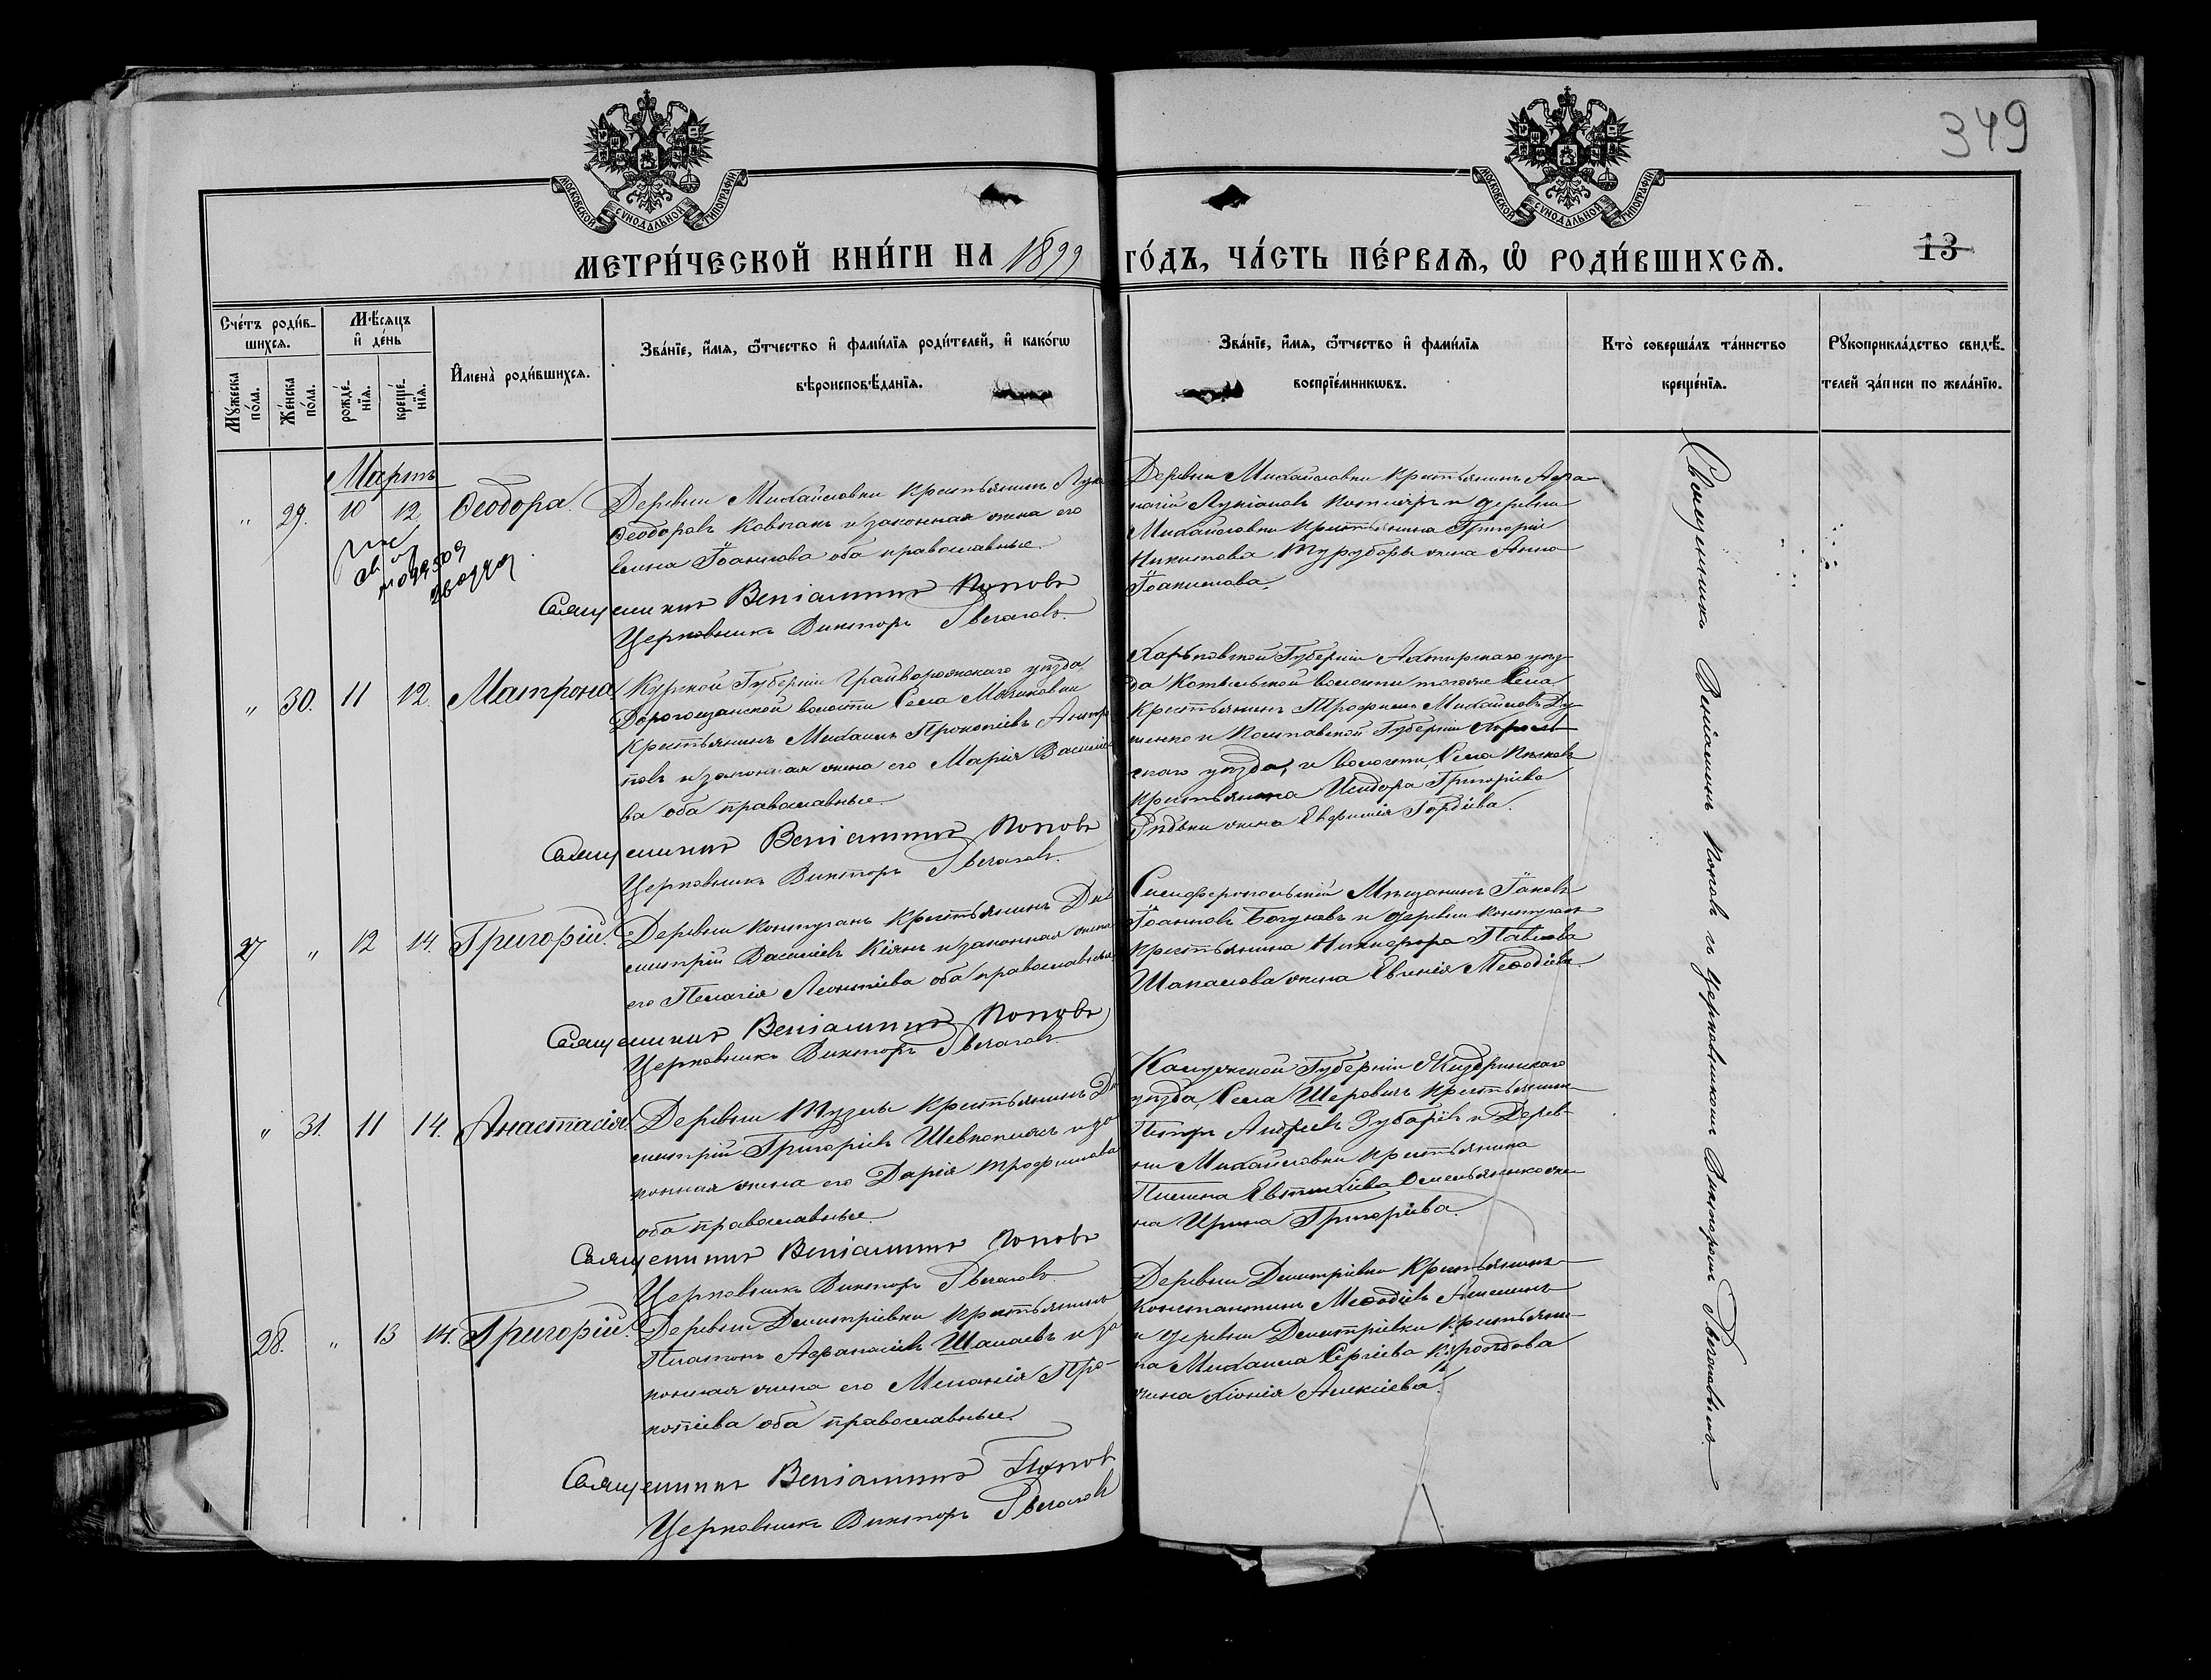 349
МОСКОВСКОЙ СУНОДАЛЬНОЙ ТИПОГРАФІИ
МОСКОВСКОЙ СУНОДАЛЬНОЙ ТИПОГРАФІИ
МЕТРИ́ЧЕСКОЙ КНИ́ГИ НА 1899 ГО́ДЪ, ЧА́СТЬ ПЕ́РВАѦ, Ѡ҆ РОДИ́ВШИХСѦ.
13
Сче́тъ роди́в-
шихсѧ.
Мꙋ́жеска
по́ла.
Же́нска
по́ла.
Мѣ́сѧцъ
и҆ де́нь
рожде́-
нїѧ.
креще́-
нїѧ.
И҆мена̀ роди́вшихсѧ.
Зва́нїе, и҆́мѧ, ѻ҆́тчество и҆ фами́лїѧ роди́телей, и҆ како́гѡ
вѣроисповѣ́данїѧ.
Зва́нїе, и҆́мѧ, ѻ҆́тчество и҆ фами́лїѧ
воспрїе́мникѡвъ.
Кто̀ соверша́лъ та́инство
креще́нїѧ.
Рꙋкоприкла́дство свидѣ́-
телей за́писи по жела́нїю.
Мартъ
" 29. 10 12 Ѳеодора.
Деревни Михайловки крестьянинъ Лука
Ѳеодоровъ Ковпакъ и законная жена его
Іоакимова оба православные.
Священникъ Веніаминъ Поповъ
Церковникъ Викторъ
Деревни Михайловки крестьянинъ Аѳа-
насій Лукіановъ и деревни
Михайловки крестьянина Григорія
Никитова Туру́бары жена Анна
Іоакимова.
" 30. 11 12. Матрона
Курской Губерніи Грайворонскаго уѣзда,
Дорогощанской волости Села
Крестьянинъ Михаилъ Прокопіевъ Антро-
повъ и законная жена его Марія Василіе-
ва оба православные.
Священникъ Веніаминъ Поповъ
Церковникъ Викторъ
Харьковской Губерніи Ахтырскаго уѣз-
да Котельской волости тогоже Села
Крестьянинъ Трофимъ Михайловъ Ду-
шенко и Полтавской Губерніи Хороль-
скаго уѣзда, и волости, Села
крестьянина Исидора Григоріева
Рѣдьки жена Евфимія Гордіева.
27 " 12 14. Григорій.
Деревни Контуганъ Крестьянинъ Ди-
митрій Василіевъ Кіянъ и законная жена
его Пелагія Леонтіева оба православные
Священникъ Веніаминъ Поповъ
Церковникъ Викторъ
Симферопольскій Мѣщанинъ Іаковъ
Іоанновъ Богуновъ и деревни Контуганъ
крестьянина Никифора Павлова
Шаналова жена Евгенія Меѳодіева.
" 31. 11 14. Анастасія.
Деревни Тузлы Крестьянинъ Ди-
митрій Григоріевъ Шевкоплясъ и за-
конная жена его Дарія Трофимова
оба православные.
Священникъ Веніаминъ Поповъ
Церковникъ Викторъ
Калужской Губерніи Жиздринскаго
уѣзда, Села Щеровичъ Крестьянинъ
Петръ Андреевъ Зубаревъ и Дерев-
ни Михайловки крестьянина
Пимена Евтихіева Омельяненко же-
на Ирина Григоріева.
28. " 13 14. Григорій.
Деревни Димитріевки Крестьянинъ
Платонъ Аѳанасіевъ Шалаевъ и за-
конная жена его Меланія Про-
копіева оба православные.
Священникъ Веніаминъ Поповъ
Церковникъ Викторъ
Деревни Димитріевки Крестьянинъ
Константинъ Меѳодіевъ Алешинъ
и деревни Димитріевки Крестьяни-
на Михаила Сергіева
жена Хіонія Алексіева.
Священникъ Веніаминъ Поповъ и церковникомъ Викторомъ